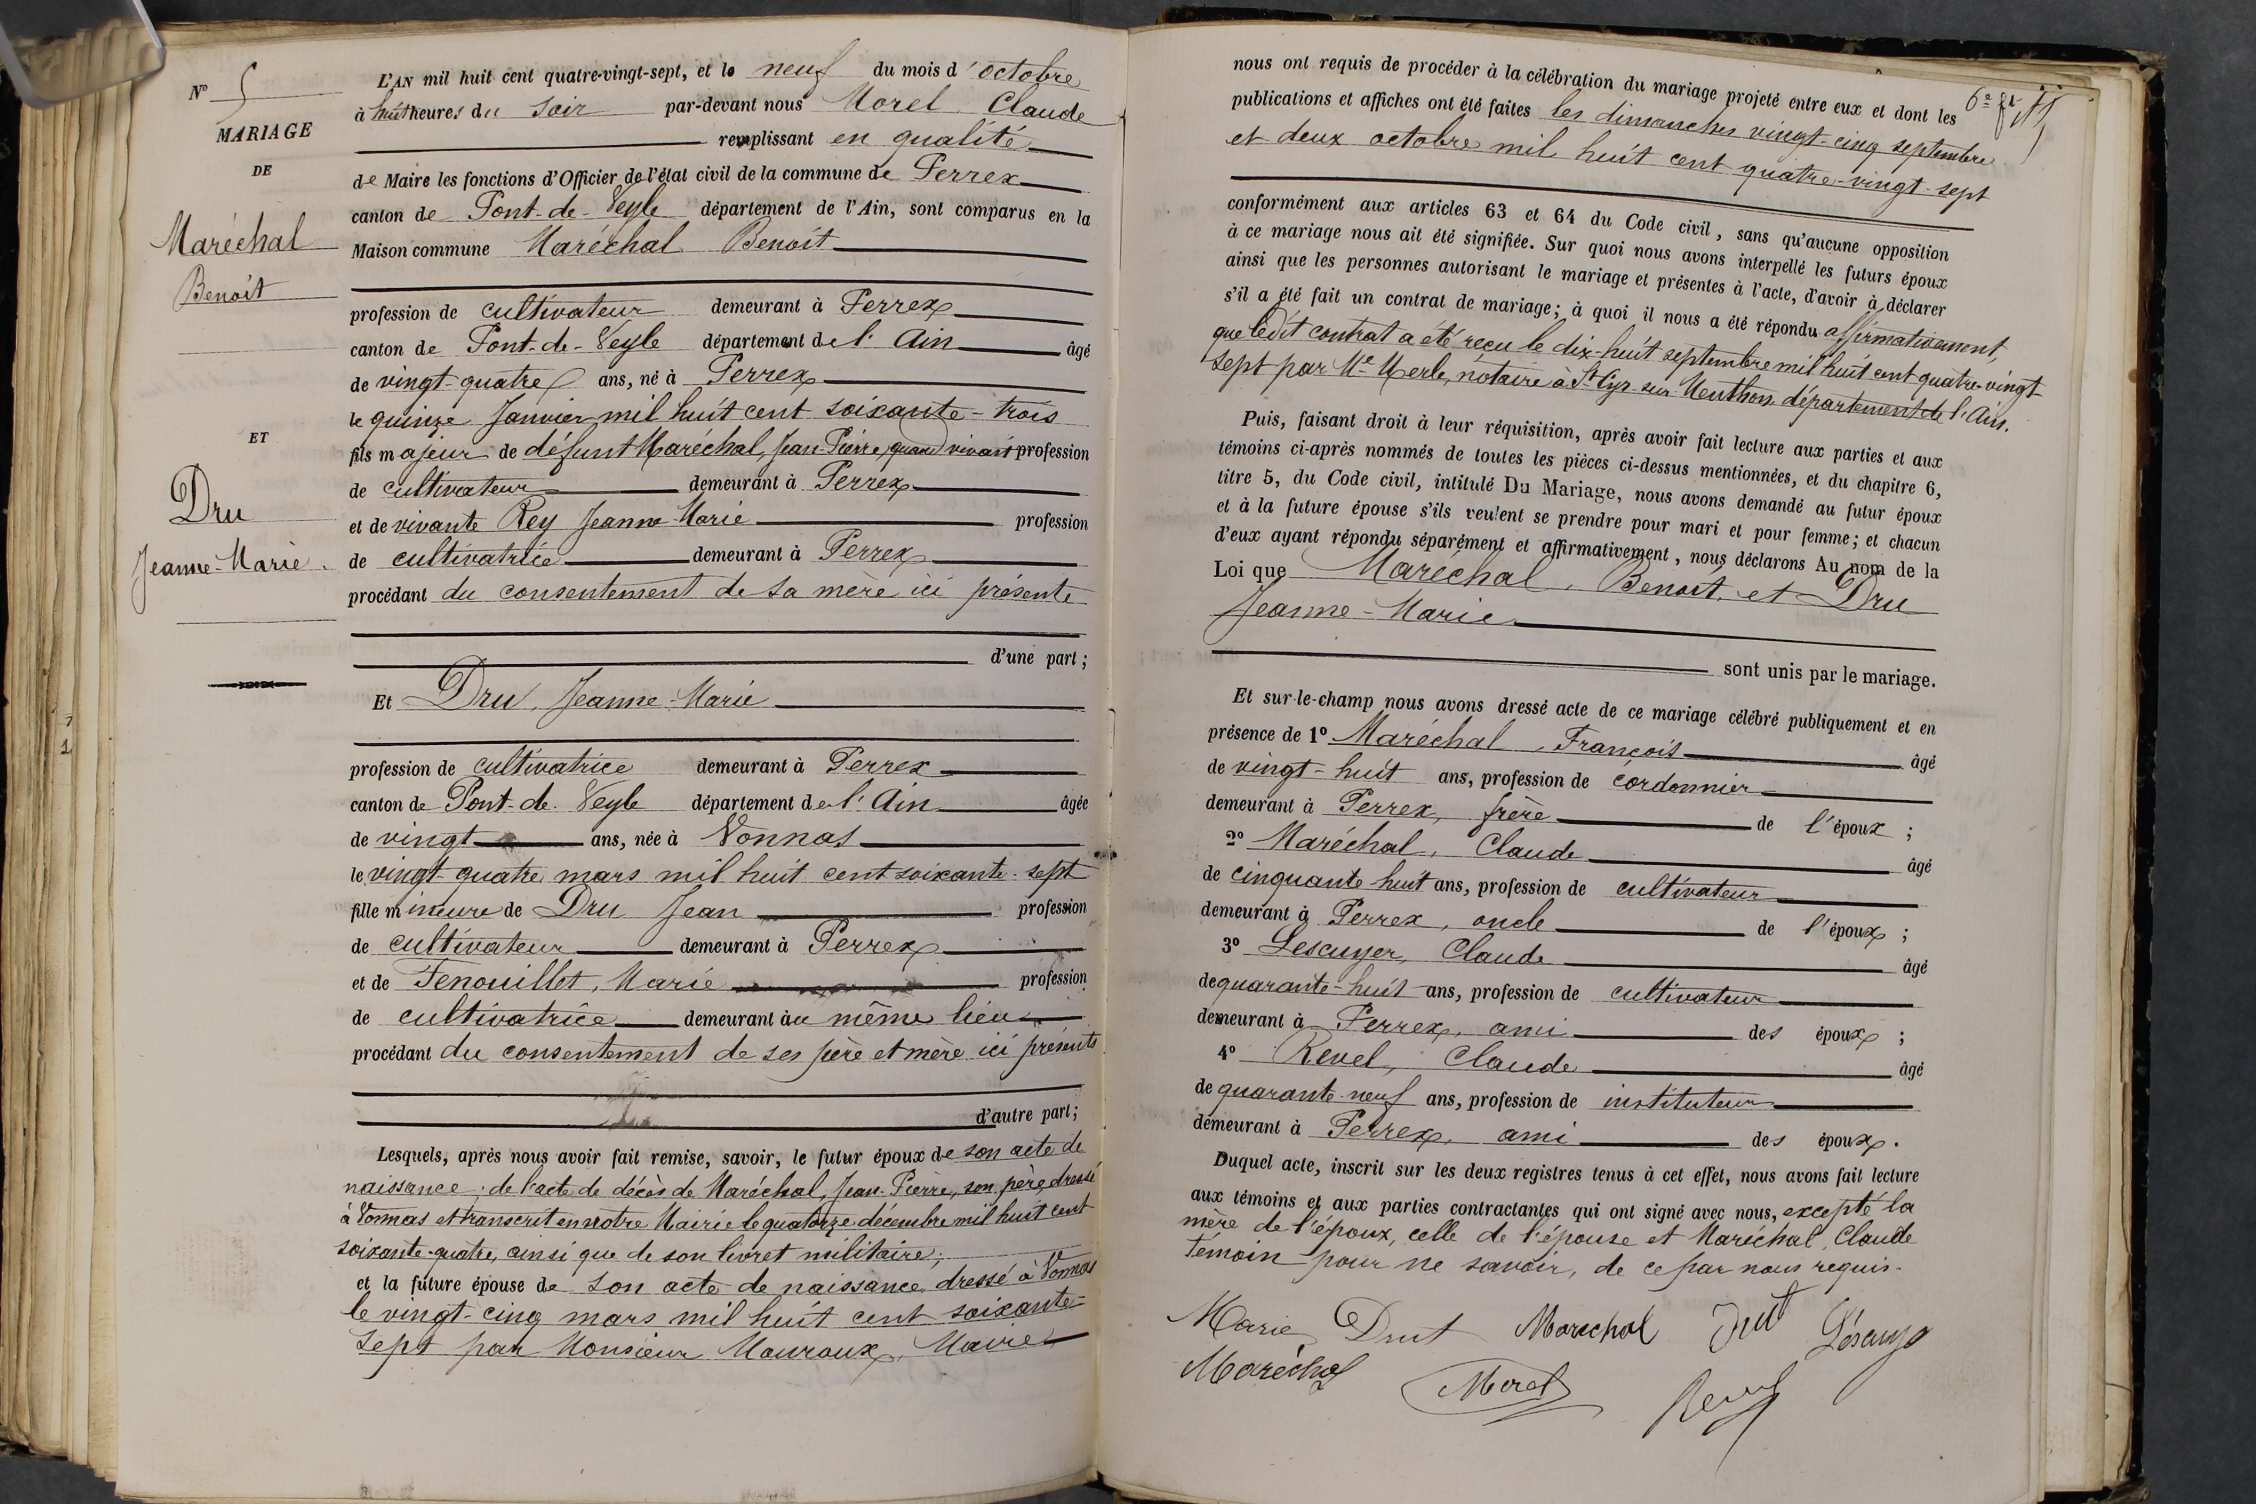 Nº 5
MARIAGE
DE
Maréchal
Benoit
ET
Dru
Jeanne-Marie.
L'AN mil huit cent quatre-vingt-sept, et le neuf du mois d'octobre
à huit heures du soir par-devant nous Morel Claude
remplissant en qualité
de Maire les fonctions d'Officier de l'état civil de la commune de Perrex
canton de Pont-de-Veyle département de l'Ain, sont comparus en la
Maison commune Maréchal Benoit
profession de cultivateur demeurant à Perrex
canton de Pont-de-Veyle département de l'Ain âgé
de vingt-quatre ans, né à Perrex
le quinze Janvier mil huit cent soixante-trois
fils majeur de défunt Maréchal, Jean-Pierre quand vivait profession
de cultivateur demeurant à Perrex
et de vivante Rey Jeanne-Marie profession
de cultivatrice demeurant à Perrex
procédant du consentement de sa mère ici présente
d'une part;
Et Dru, Jeanne-Marie
profession de cultivatrice demeurant à Perrex
canton de Pont-de-Veyle département de l'Ain âgée
de vingt ans, née à Vonnas
le vingt-quatre mars mil huit cent soixante-sept
fille mineure de Dru Jean profession
de cultivateur demeurant à Perrex
et de Fenouillet, Marie profession
de cultivatrice demeurant au même lieu
procédant du consentement de ses père et mère ici présents
d'autre part;
Lesquels, après nous avoir fait remise, savoir, le futur époux de son acte de
naissance; de l'acte de décès de Maréchal, Jean-Pierre, son père, dressé
à Vonnas et transcrit en notre Mairie le quatorze décembre mil huit cent
soixante-quatre, ainsi que de son livret militaire;
et la future épouse de son acte de naissance dressé à Vonnas
le vingt-cinq mars mil huit cent soixante-
sept par Monsieur Mouroux, Maire
6e ft
nous ont requis de procéder à la célébration du mariage projeté entre eux et dont les
publications et affiches ont été faites les dimanches vingt-cinq septembre
et deux octobre mil huit cent quatre-vingt-sept
conformément aux articles 63 et 64 du Code civil, sans qu'aucune opposition
à ce mariage nous ait été signifiée. Sur quoi nous avons interpellé les futurs époux
ainsi que les personnes autorisant le mariage et présentes à l'acte, d'avoir à déclarer
s'il a été fait un contrat de mariage; à quoi il nous a été répondu affirmativement,
que ledit contrat a été reçu le dix-huit septembre mil huit cent quatre-vingt
sept par Me Merle, notaire à St Cyr-sur-Menthon département de l'Ain.
Puis, faisant droit à leur réquisition, après avoir fait lecture aux parties et aux
témoins ci-après nommés de toutes les pièces ci-dessus mentionnées, et du chapitre 6,
titre 5, du Code civil, intitulé Du Mariage, nous avons demandé au futur époux
et à la future épouse s'ils veulent se prendre pour mari et pour femme; et chacun
d'eux ayant répondu séparément et affirmativement, nous déclarons Au nom de la
Loi que Maréchal, Benoit, et Dru
Jeanne-Marie
sont unis par le mariage.
Et sur-le-champ nous avons dressé acte de ce mariage célébré publiquement et en
présence de 1º Maréchal, François âgé
de vingt-huit ans, profession de cordonnier
demeurant à Perrex, frère de l'époux;
2º Maréchal, Claude âgé
de cinquante-huit ans, profession de cultivateur
demeurant à Perrex, oncle de l'époux;
3º Lescuyer, Claude âgé
de quarante-huit ans, profession de cultivateur
demeurant à Perrex, ami des époux;
4º Revel, Claude âgé
de quarante-neuf ans, profession de instituteur
demeurant à Perrex, ami des époux.
Duquel acte, inscrit sur les deux registres tenus à cet effet, nous avons fait lecture
aux témoins et aux parties contractantes qui ont signé avec nous, excepté la
mère de l'époux, celle de l'épouse et Maréchal, Claude
témoin pour ne savoir, de ce par nous requis.
Marie Drut Marechal Drut
Maréchal Morel Revel